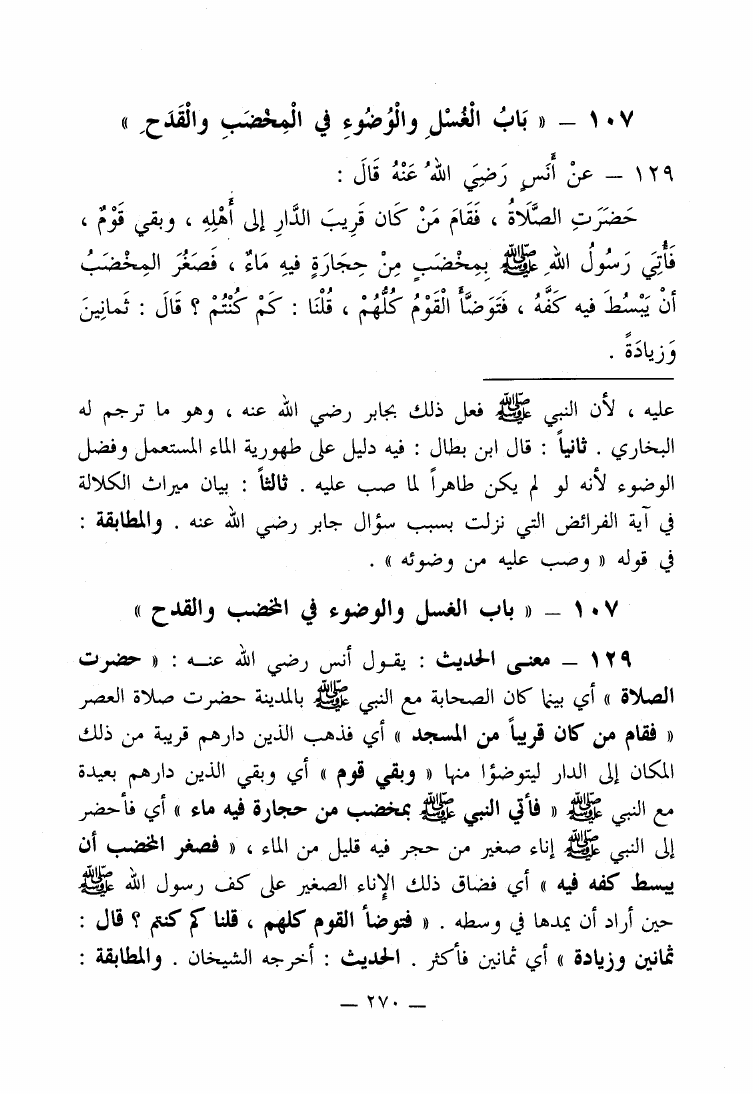 ١٠٧ – « بَابُ الْغُسْلِ والْوُضُوءِ في الْمِخْضَبِ والْقَدَحِ »
١٢٩ – عنْ أَنَسٍ رَضِيَ اللهُ عَنْهُ قَالَ :
حَضَرَتِ الصَّلَاةُ ، فَقَامَ مَنْ كَان قَرِيبَ الدَّارِ إلى أَهْلِهِ ، وبقي قَوْمٌ ،
فَأُتِيَ رَسُولُ اللهِ ﷺ بِمِخْضَبٍ مِنْ حِجَارَةٍ فيهِ مَاءٌ ، فَصَغُرَ المِخْضَبُ
أنْ يَبْسُطَ فيه كَفَّهُ ، فَتَوَضَّأَ الْقَوْمُ كُلُّهُمْ ، قُلْنَا : كَمْ كُنْتُمْ ؟ قَالَ : ثَمانِينَ
وَزِيادَةً .
عليه ، لأن النبي ﷺ فعل ذلك بجابر رضي الله عنه ، وهو ما ترجم له
البخاري . ثانياً : قال ابن بطال : فيه دليل على طهورية الماء المستعمل وفضل
الوضوء لأنه لو لم يكن طاهراً لما صب عليه . ثالثاً : بيان ميراث الكلالة
في آية الفرائض التي نزلت بسبب سؤال جابر رضي الله عنه . والمطابقة :
في قوله « وصب عليه من وضوئه » .
١٠٧ – « باب الغسل والوضوء في المخضب والقدح »
١٢٩ – معنى الحديث : يقول أنس رضي الله عنه : « حضرت
الصلاة » أي بينما كان الصحابة مع النبي ﷺ بالمدينة حضرت صلاة العصر
« فقام من كان قريباً من المسجد » أي فذهب الذين دارهم قريبة من ذلك
المكان إلى الدار ليتوضؤا منها « وبقي قوم » أي وبقي الذين دارهم بعيدة
مع النبي ﷺ « فأتي النبي ﷺ بمخضب من حجارة فيه ماء » أي فأحضر
إلى النبي ﷺ إناء صغير من حجر فيه قليل من الماء ، « فصغر المخضب أن
يبسط كفه فيه » أي فضاق ذلك الإناء الصغير على كف رسول الله ﷺ
حين أراد أن يمدها في وسطه . « فتوضأ القوم كلهم ، قلنا كم كنتم ؟ قال :
ثمانين وزيادة » أي ثمانين فأكثر . الحديث : أخرجه الشيخان . والمطابقة :
– ٢٧٠ –